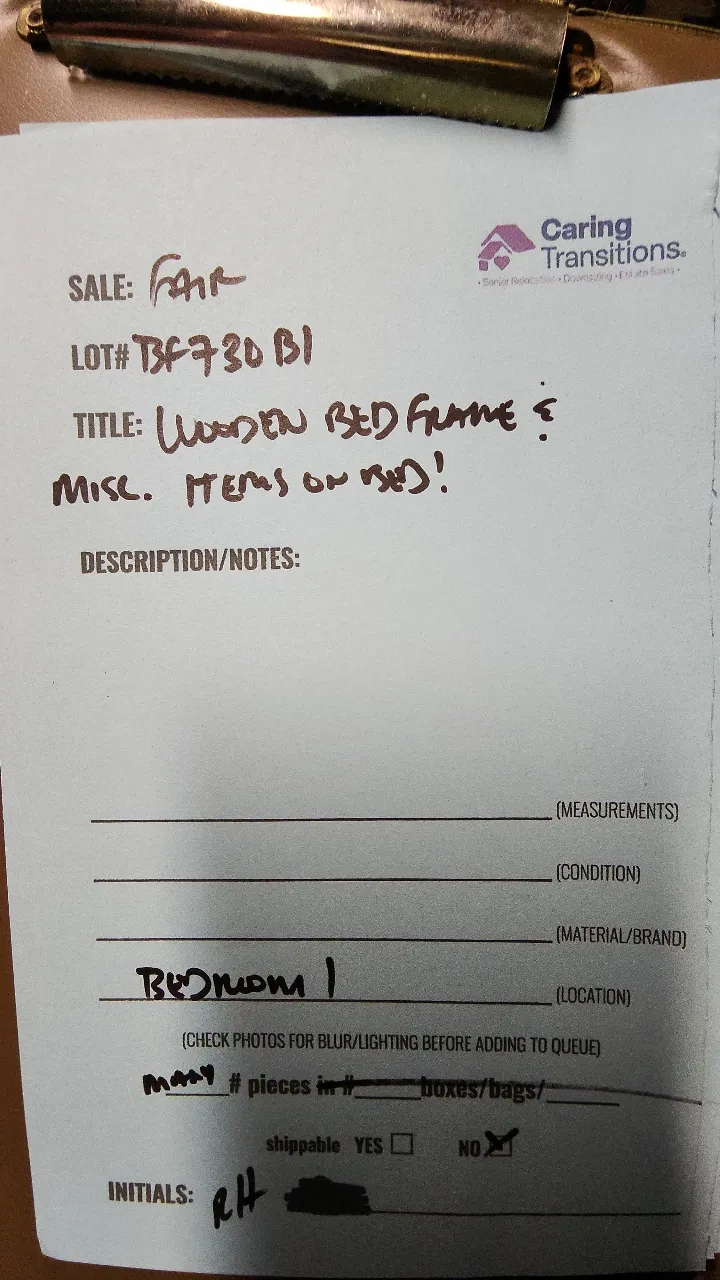 Caring
Transitions.
• Senior Relocation • Downsizing • Estate Sales •
SALE: FAIR
LOT# BF730B1
TITLE: WOODEN BED FRAME &
MISC. ITEMS ON BED!
DESCRIPTION/NOTES:
(MEASUREMENTS)
(CONDITION)
(MATERIAL/BRAND)
BEDROOM 1 (LOCATION)
(CHECK PHOTOS FOR BLUR/LIGHTING BEFORE ADDING TO QUEUE)
MANY # pieces in # boxes/bags/
shippable YES NO
INITIALS: RH